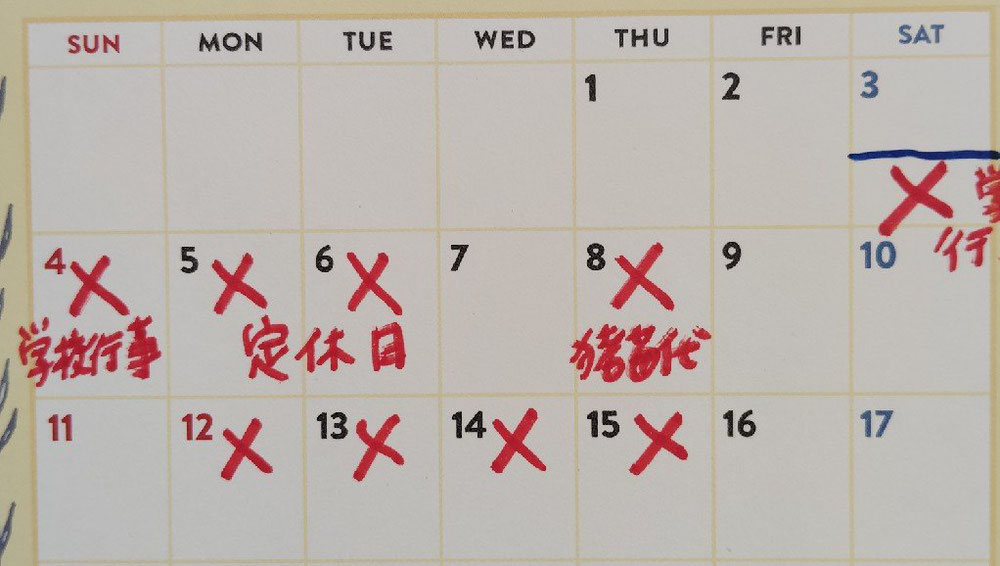 SUN MON TUE WED THU FRI SAT
1 2 3
X 学
行
4 X 5 X 6 X 7 8 X 9 10
学校行事 定休日 猪苗代
11 12 X 13 X 14 X 15 X 16 17